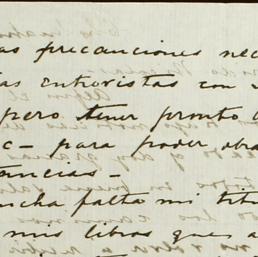 as precauciones nec
as entrevistas con
pero tener pronto
c— para poder obra
tancias—
ucha falta mi titu
mis libros que a